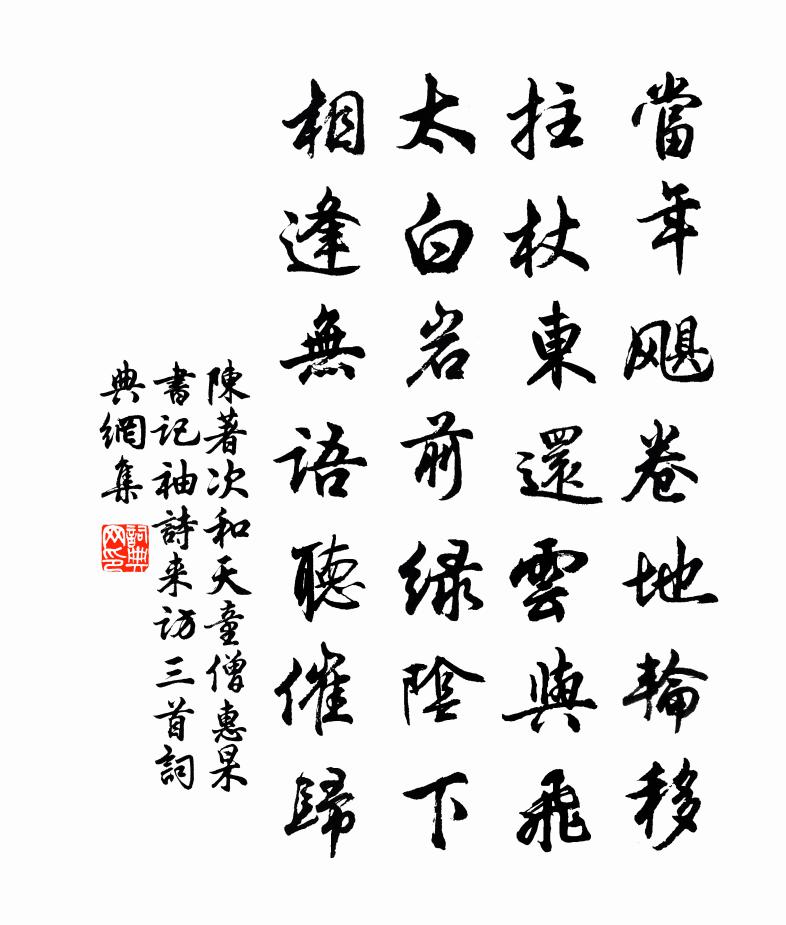 當年飓卷地輪移
拄杖東還雲與飛
太白岩前緑陰下
相逢無語聽催歸
陳著次和天童僧惠杲
書记袖詩来访三首詞
典網集
詞典
网印